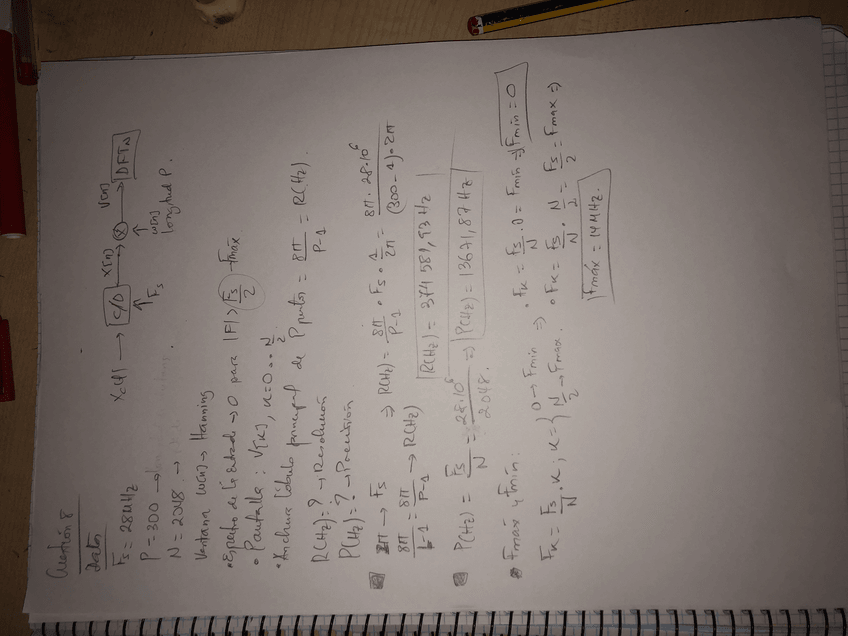 Cuestión 8
Datos
X(t) → C/D → X[n] → ⊗ → V[n] → DFT_N
↑ Fs
↑ w[n] longitud P.
Fs = 28MHz
P = 300 →
N = 2048 →
Ventana w[n] → Hanning
• Espectro de la entrada → 0 para |F| > Fs/2 → Fmax
• Pantalla: V[k], k=0..N/2
• Anchura lóbulo principal de P puntos = 8π/P-1 = R(Hz).
R(Hz) = ? → Resolución
P(Hz) = ? → Precisión
2π → Fs
8π/L-1 = 8π/P-1 → R(Hz)
⇒ R(Hz) = 8π/P-1 · Fs · 1/2π = 8π · 28·10⁶/(300-1)·2π
R(Hz) = 374 581,93 Hz
P(Hz) = Fs/N = 28·10⁶/2048. ⇒ P(Hz) = 13671,87 Hz
Fmax y Fmín:
Fk = Fs/N · k ; k = { 0 → Fmin
N/2 → Fmax. ⇒
• Fk = Fs/N · 0 = Fmin ⇒ Fmin = 0
• Fk = Fs/N · N/2 = Fs/2 = Fmax ⇒
Fmax = 14MHz.